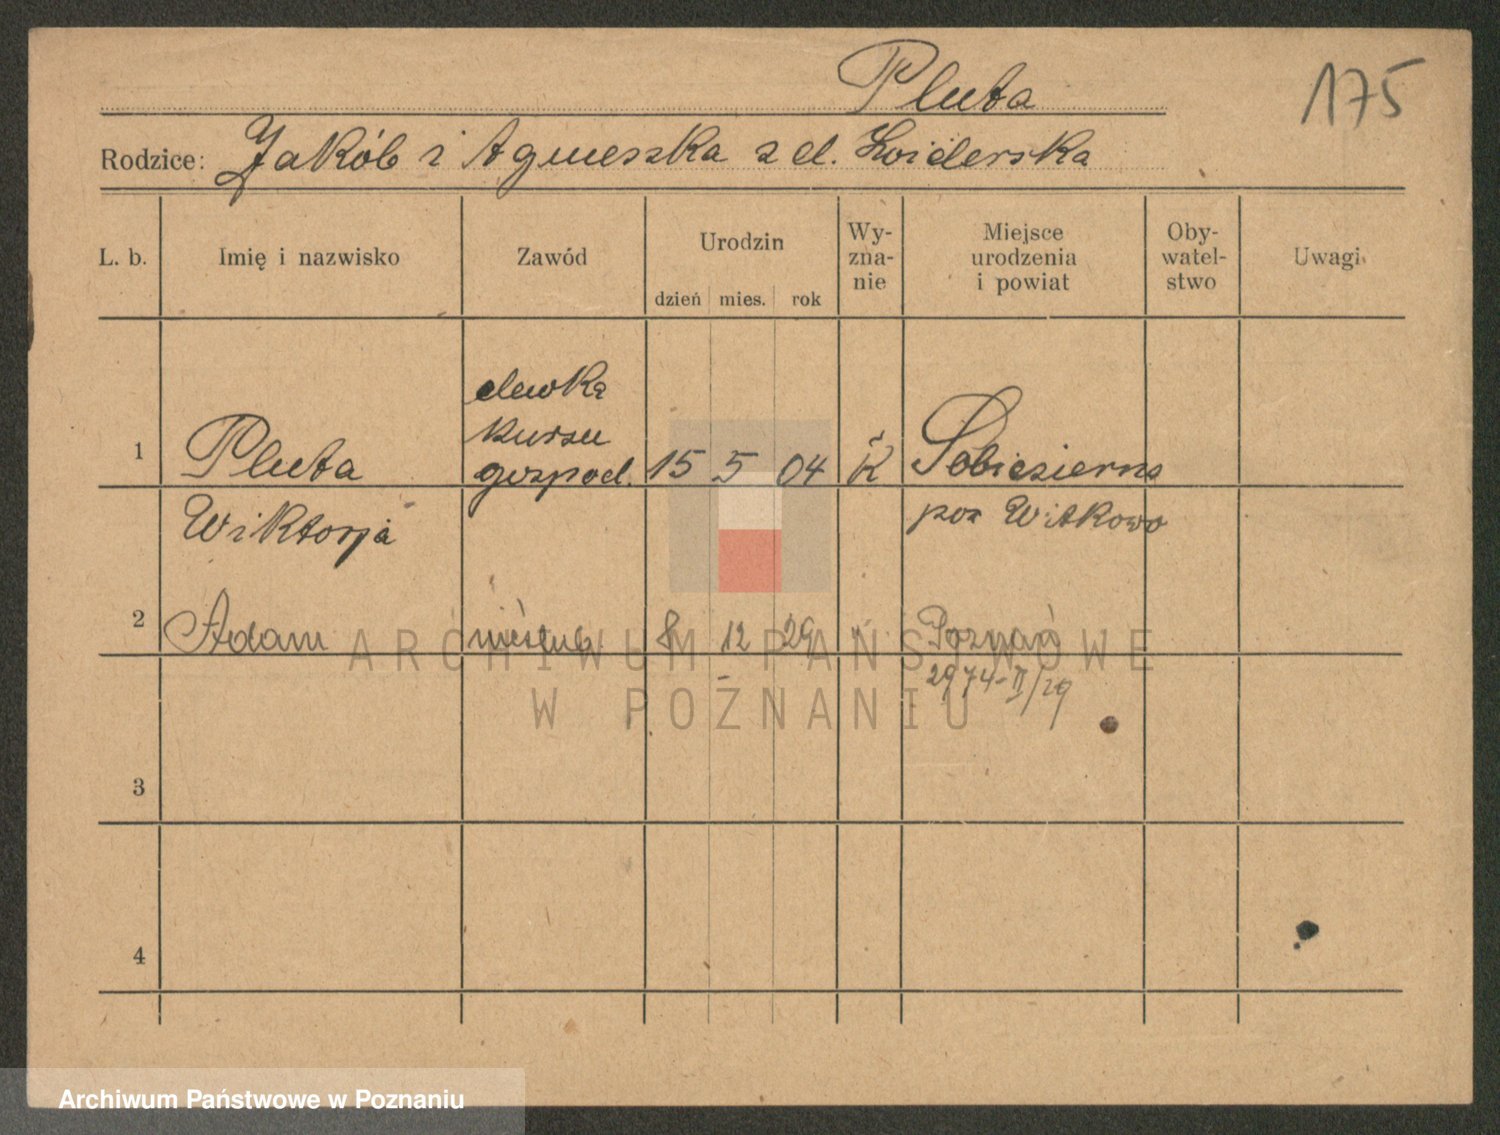 Pluta
175
Rodzice: Jakób i Agnieszka z d.
L. b.
Imię i nazwisko
Zawód
Urodzin
dzień mies. rok
Wy-
zna-
nie
Miejsce
urodzenia
i powiat
Oby-
watel-
stwo
Uwagi
elewka
kursu
gospod.
1 Pluta 15 5 04 K
Wiktorja
pow Witkowo
2 Adam nieślub. 8 12 29 Poznań
2974-II/29
3
4
ARCHIWUM PAŃSTWOWE
W POZNANIU
Archiwum Państwowe w Poznaniu